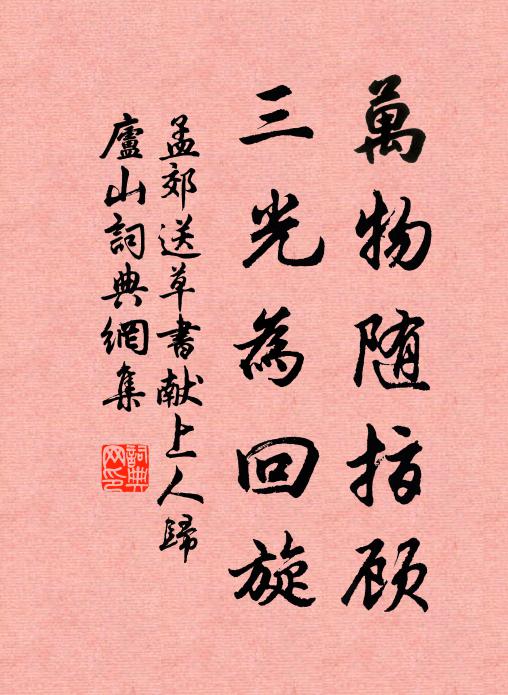 萬物随指顾
三光為回旋
孟郊送草書献上人歸
廬山詞典網集
詞典
网印